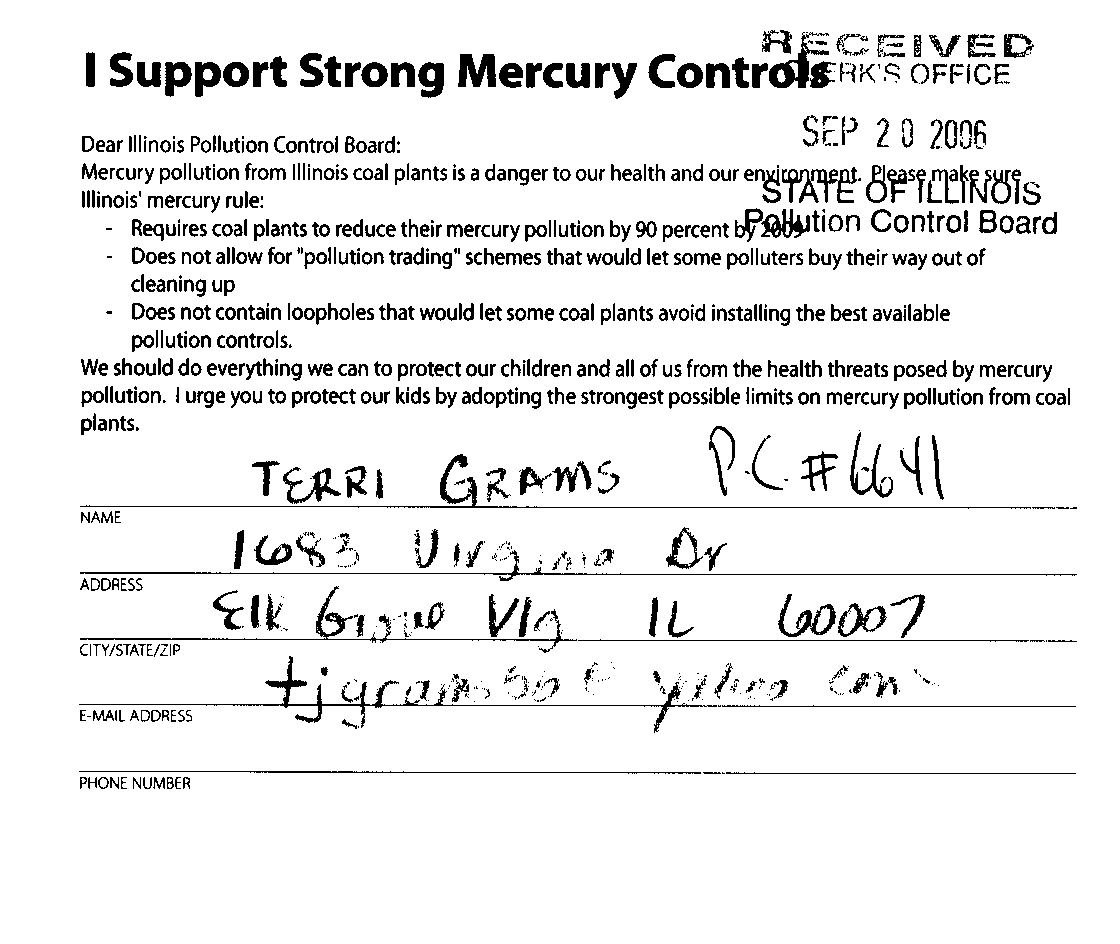 RECEIVED
CLERK'S OFFICE
I Support Strong Mercury Controls
SEP 20 2006
STATE OF ILLINOIS
Pollution Control Board
Dear Illinois Pollution Control Board:
Mercury pollution from Illinois coal plants is a danger to our health and our environment. Please make sure
Illinois' mercury rule:
- Requires coal plants to reduce their mercury pollution by 90 percent by 2009
- Does not allow for "pollution trading" schemes that would let some polluters buy their way out of
cleaning up
- Does not contain loopholes that would let some coal plants avoid installing the best available
pollution controls.
We should do everything we can to protect our children and all of us from the health threats posed by mercury
pollution. I urge you to protect our kids by adopting the strongest possible limits on mercury pollution from coal
plants.
TERRI GRAMS P.C.#6641
NAME
1683 Virginia Dr
ADDRESS
Elk Grove Vlg IL 60007
CITY/STATE/ZIP
yahoo com
E-MAIL ADDRESS
PHONE NUMBER